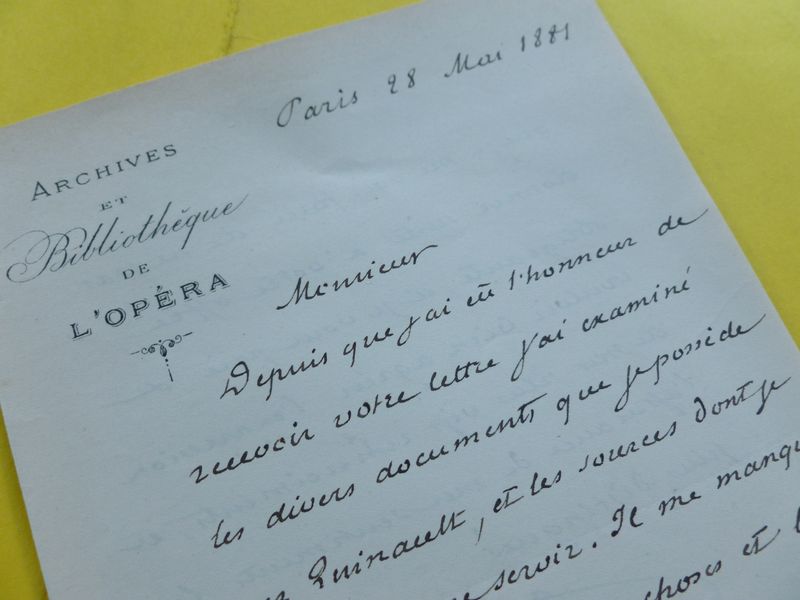 Paris 28 Mai 1881
ARCHIVES
ET
Bibliothèque
DE
L'OPÉRA
Monsieur
Depuis que j'ai eu l'honneur de
recevoir votre lettre j'ai examiné
les divers documents que je possède
Quinault, et les sources dont je
servir. Il me manqu
choses et